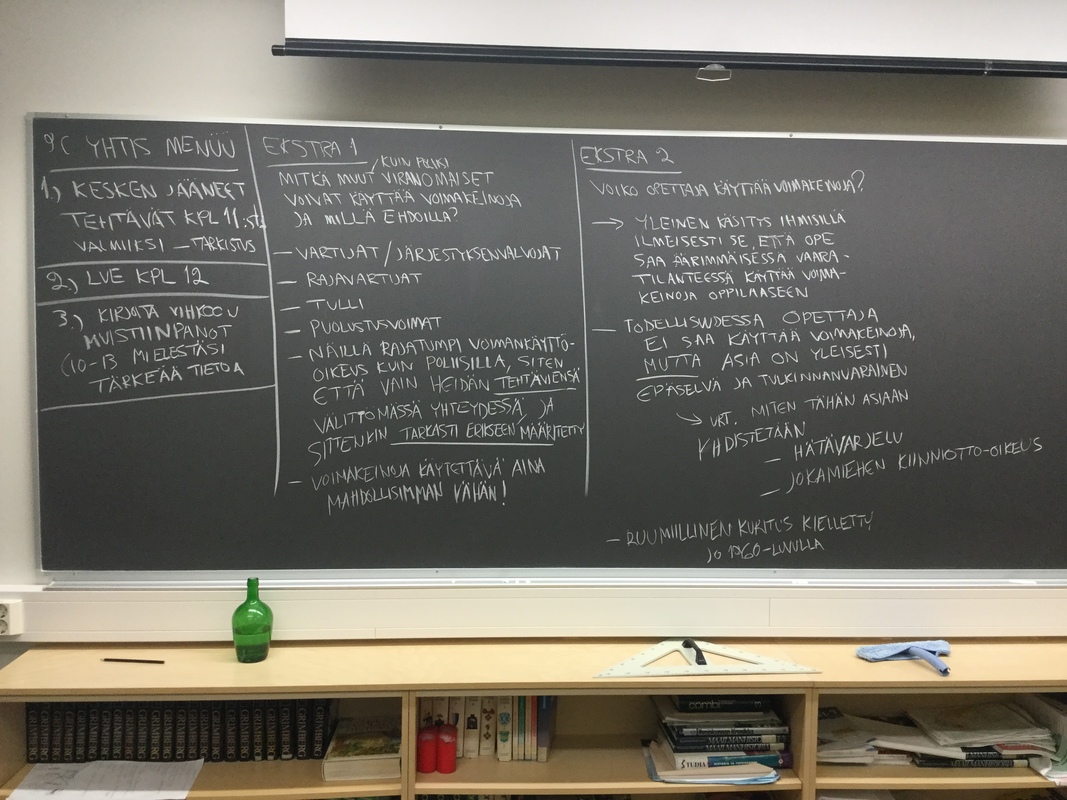 9C YHTIS MENÜÜ
1.) KESKEN JÄÄNEET
TEHTÄVÄT KPL 11:stä
VALMIKSI – TARKISTUS
2.) LUE KPL 12
3.) KIRJOITA VIHKOOU
MUISTIINPANOT
(10-13 MIELESTÄSI
TÄRKEÄÄ TIETOA
EKSTRA 1
KUIN POLIISI
MITKÄ MUUT VIRANOMAISET
VOIVAT KÄYTTÄÄ VOIMAKEINOJA
JA MILLÄ EHDOILLA?
– VARTIJAT / JÄRJESTYKSENVALVOJAT
– RAJAVARTIJAT
– TULLI
– PUOLUSTUSVOIMAT
– NÄILLÄ RAJATUMPI VOIMANKÄYTTÖ-
OIKEUS KUIN POLIISILLA, SITEN
ETTÄ VAIN HEIDÄN TEHTÄVIENSÄ
VÄLITTÖMÄSSÄ YHTEYDESSÄ, JA
SITTENKIN TARKASTI ERIKSEEN MÄÄRITETTY
– VOIMAKEINOJA KÄYTETTÄVÄ AINA
MAHDOLLISIMMAN VÄHÄN!
EKSTRA 2
VOIKO OPETTAJA KÄYTTÄÄ VOIMAKEINOJA?
→ YLEINEN KÄSITYS IHMISILLÄ
ILMEISESTI SE, ETTÄ OPE
SAA ÄÄRIMMÄISESSÄ VAARA-
TILANTEESSA KÄYTTÄÄ VOIMA-
KEINOJA OPPILAASEEN
– TODELLISUUDESSA OPETTAJA
EI SAA KÄYTTÄÄ VOIMAKEINOJA,
MUTTA ASIA ON YLEISESTI
EPÄSELVÄ JA TULKINNANVARAINEN
→ VRT. MITEN TÄHÄN ASIAAN
YHDISTETÄÄN
– HÄTÄVARJELU
– JOKAMIEHEN KIINNIOTTO-OIKEUS
– RUUMIILLINEN KURITUS KIELLETTY
JO 1960-LUVULLA
combi
STUDIA